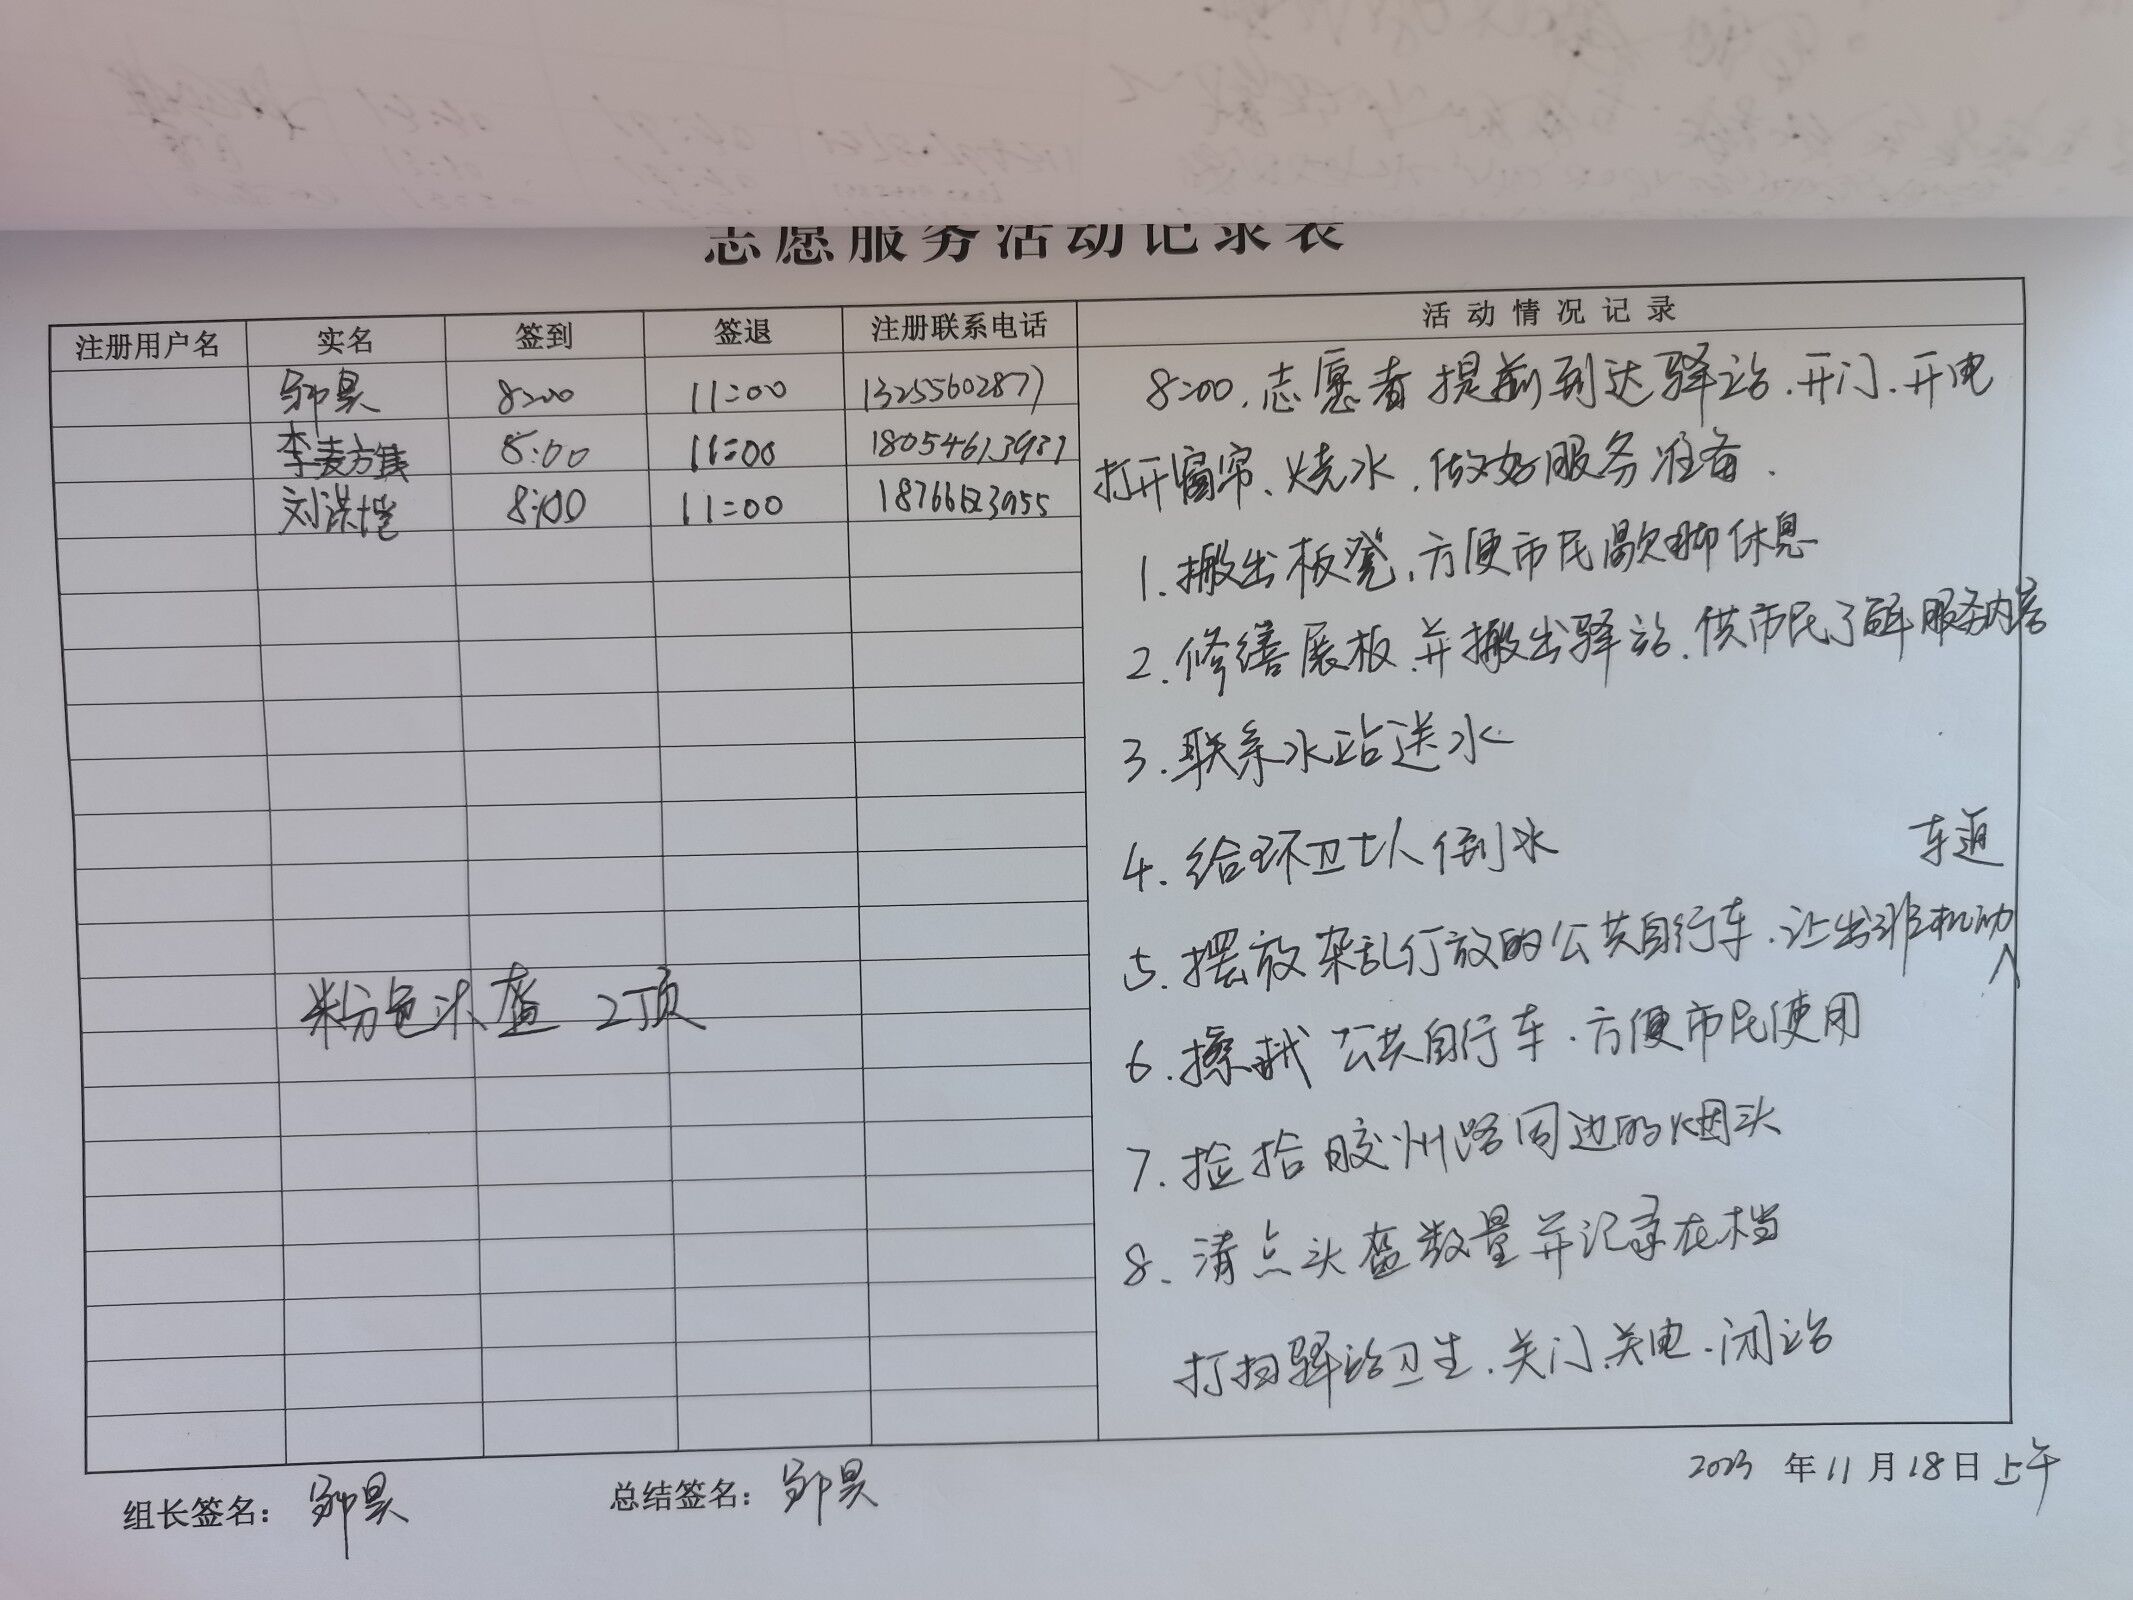 志愿服务活动记录表
注册用户名 实名 签到 签退 注册联系电话 活动情况记录
邹昊 8:00 11:00 13255602877
李麦方 8:00 11:00 18054613937
刘洪恺 8:00 11:00
8:00,志愿者提前到达驿站、开门、开电
打开窗帘、烧水,做好服务准备.
1.搬出板凳,方便市民歇脚休息
2.修缮展板并搬出驿站,供市民了解服务内容
3.联系水站送水
4.给环卫工人倒水
车道
5.摆放杂乱停放的公共自行车.让出非机动
粉色头盔 2顶
6.擦拭公共自行车.方便市民使用
7.捡拾胶州路周边的烟头
8、清点头盔数量并记录在档
打扫驿站卫生、关门、关电、闭站
2023 年 11 月 18 日 上午
组长签名: 邹昊 总结签名: 邹昊